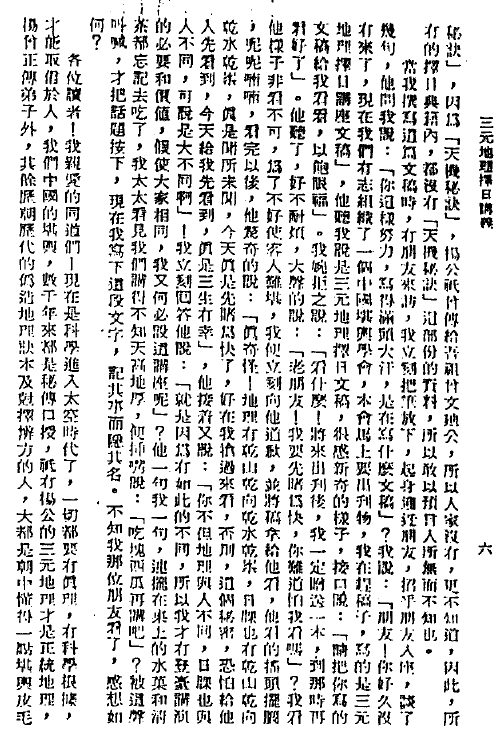 三元地理擇日講義
六
秘訣」，因爲「天機秘訣」，楊公祇曾傳給吾祖曾文辿公，所以人家沒有，更不知道，因此，所
有的擇日典籍內，都沒有「天機秘訣」這部份的資料，所以敢以預言人所無而不知也。
當我撰寫這篇文稿時，有朋友來訪，我立刻把筆放下，起身迎迓朋友，招乎朋友入座，談了
幾句，他問我說：「你這樣努力，寫得滿頭大汗，是在寫什麽文稿」？我說：「朋友！你好久沒
有來了，現在我們有志組織了一個中國堪輿學會，本會馬上要出刊物，我在趕稿子，寫的是三元
地理擇日講座文稿」，他聽我說是三元地理擇日文稿，很感新奇的樣子，接口說：「請把你寫的
文稿給我看看，以飽眼福」。我婉拒之說：「看什麽！將來出刊後，我一定贈送一本，到那時再
看好了」。他聽了，好不耐煩，大聲的說：「老朋友！我要先睹爲快，你難道怕我看嗎」？我看
他樣子非看不可，爲了不好使客人難堪，我便立刻向他道歉，並將稿拿給他看，他看的搖頭擺腦
，呢呢喃喃，看完以後，他驚奇的說：「眞奇怪！地理有乾山乾向乾水乾來，日課也有乾山乾向
乾水乾來，眞是聞所未聞，今天眞是先睹爲快了，好在我搶過來看，否則，這個秘密，恐怕給他
人先看到，今天給我先看到，眞是三生有幸」，他接着又說：「你不但地理與人不同，日課也與
人不同，可說是大不同啊」！我立刻回答他說：「就是因爲有如此的不同，所以我才有登臺講演
的必要和價値，假使大家相同，我又何必設這講座呢」？他一句我一句，連擺在桌上的水菓和清
茶都忘記去吃了，我太太看見我們講得不知天高地厚，便插嘴說：「吃塊西瓜再講吧」？被這聲
叫喊，才把話題按下，現在我寫下這段文字，記其事而隱其名。不知我那位朋友看了，感想如
何？
各位讀者！我親愛的同道們！現在是科學進入太空時代了，一切都要有眞理，有科學根據，
才能取信於人，我們中國的堪輿，數千年來都是秘傳口授，祇有楊公的三元地理才是正統地理，
楊曾正傳弟子外，其餘歷朝歷代的僞造地理訣本及選擇辦方的人，大都是朝中懂得一點堪輿皮毛